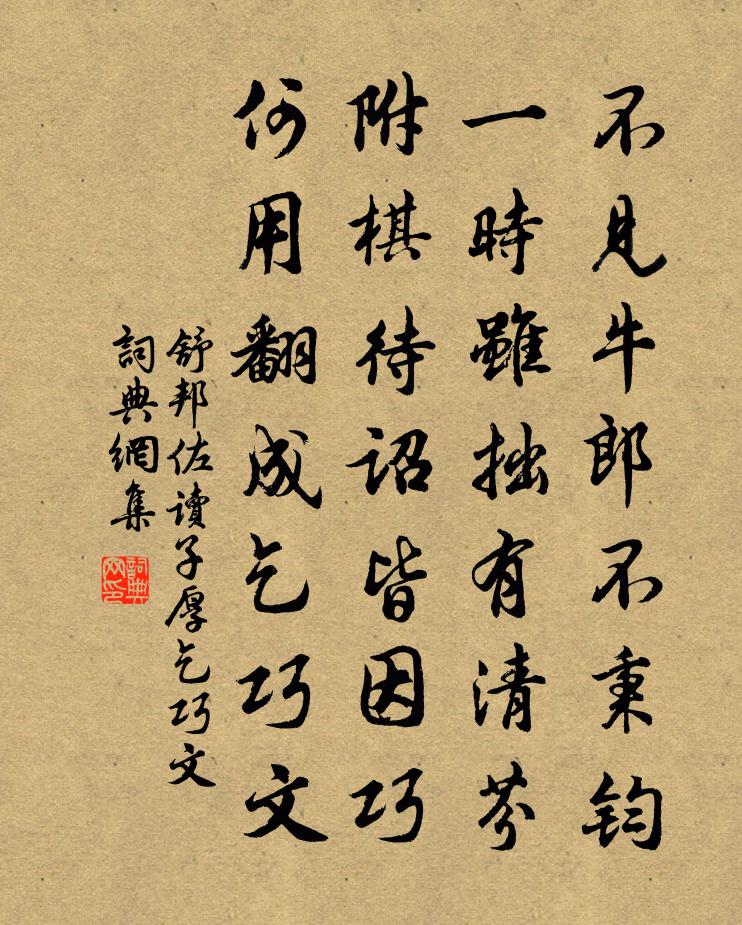 不見牛郎不秉鈞
一時雖拙有清芬
附棋待詔皆因巧
何用翻成乞巧文
舒邦佐讀子厚乞巧文
詞典網集
詞典
网印